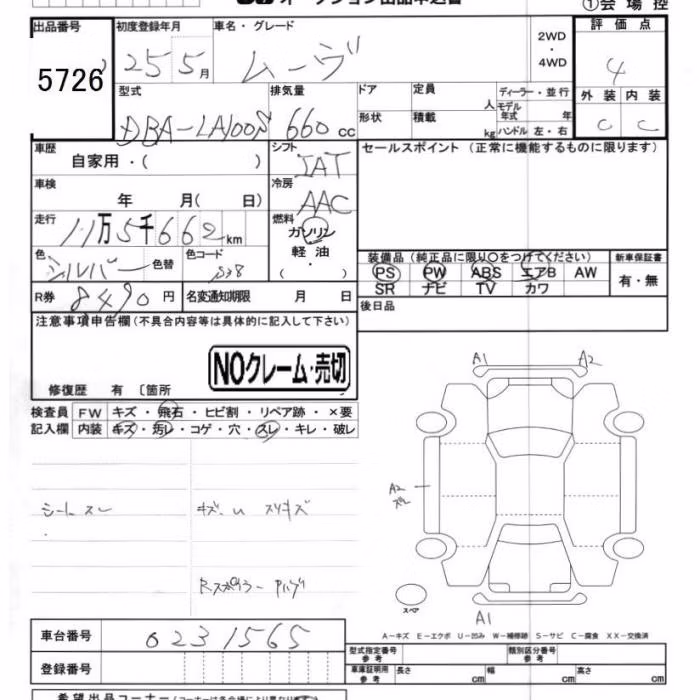 オークション出品申込書 ①会場控
出品番号 初度登録年月 車名・グレード 評価点
5726 25 5月 ムーヴ 2WD・4WD 4
型式 排気量 ドア 定員 人 ディーラー・並行 外装 内装
DBA-LA100S 660cc 形状 積載 kg モデル年式 年 C C
ハンドル 左・右
車歴 自家用・( ) シフト IAT セールスポイント (正常に機能するものに限ります)
車検 年 月( 日) 冷房 AAC
走行 11万5千662km 燃料 ガソリン・軽油・( )
色 シルバー 色替 色コード S28 装備品 (純正品に限り○をつけてください) 新車保証書
PS PW ABS エアB AW 有・無
R券 8490円 名変通知期限 月 日 SR ナビ TV カワ
注意事項申告欄 (不具合内容等は具体的に記入して下さい) 後日品
NOクレーム・売切
修復歴 有 〔箇所
検査員 FW キズ・飛石・ヒビ割・リペア跡・×要
記入欄 内装 キズ・汚レ・コゲ・穴・スレ・キレ・破レ
A1 A2
A2
シートスレ キズ. U スリキズ
Rスポイラー
スペア
A1
A-キズ E-エクボ U-凹み W-補修跡 S-サビ C-腐食 XX-交換済
車台番号 0231565
型式指定番号 参考 類別区分番号 参考
登録番号 車庫証明用 参考 長さ cm 幅 cm 高さ cm
希望出品コーナー